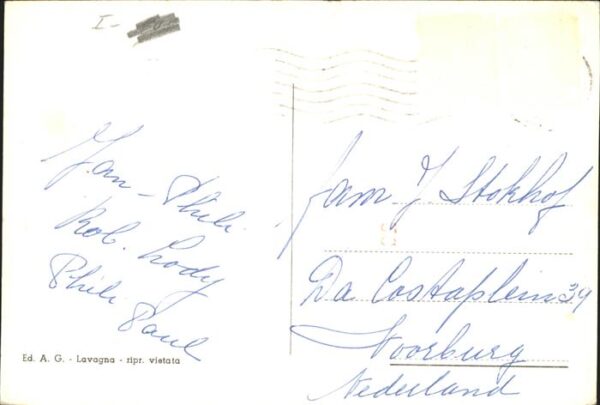 I-
Jan - Phili
Rob. Lody
Phile Paul
Ed. A. G. - Lavagna - ripr. vietata
fam J Stokhof
Da Costaplein 39
Voorburg
Nederland